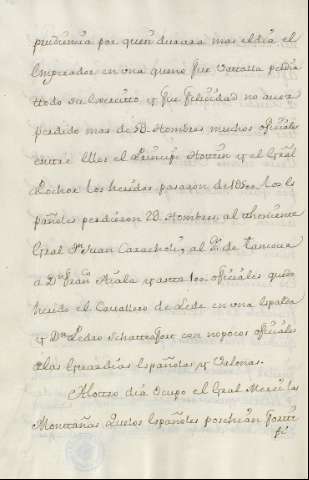 prudencia por quen durara mas el dia el
Emperador en una que fue Vattalla perdia
ttodo su Exercitto y fue felicidad no aver
perdido mas de 5D. Hombres muchos ofiziales
entre ellos el Principe Hosttein y el Gral
los heridos pasaron de 1500. Los Es
pañoles perdieron 2D. Hombres, al theniente
Gral Dn Juan Caracholi, al
a Dn Juan Aiala y astta 100. ofiziales quedo
herido el Cavallero de Lede en una espalda
y Dn Pedro con no pocos ofiziales
de las Guardias Españolas y Valonas.
Al ottro dia Ocupo el Gral Merci las
Monttañas que los Españoles poschian fortti
fi